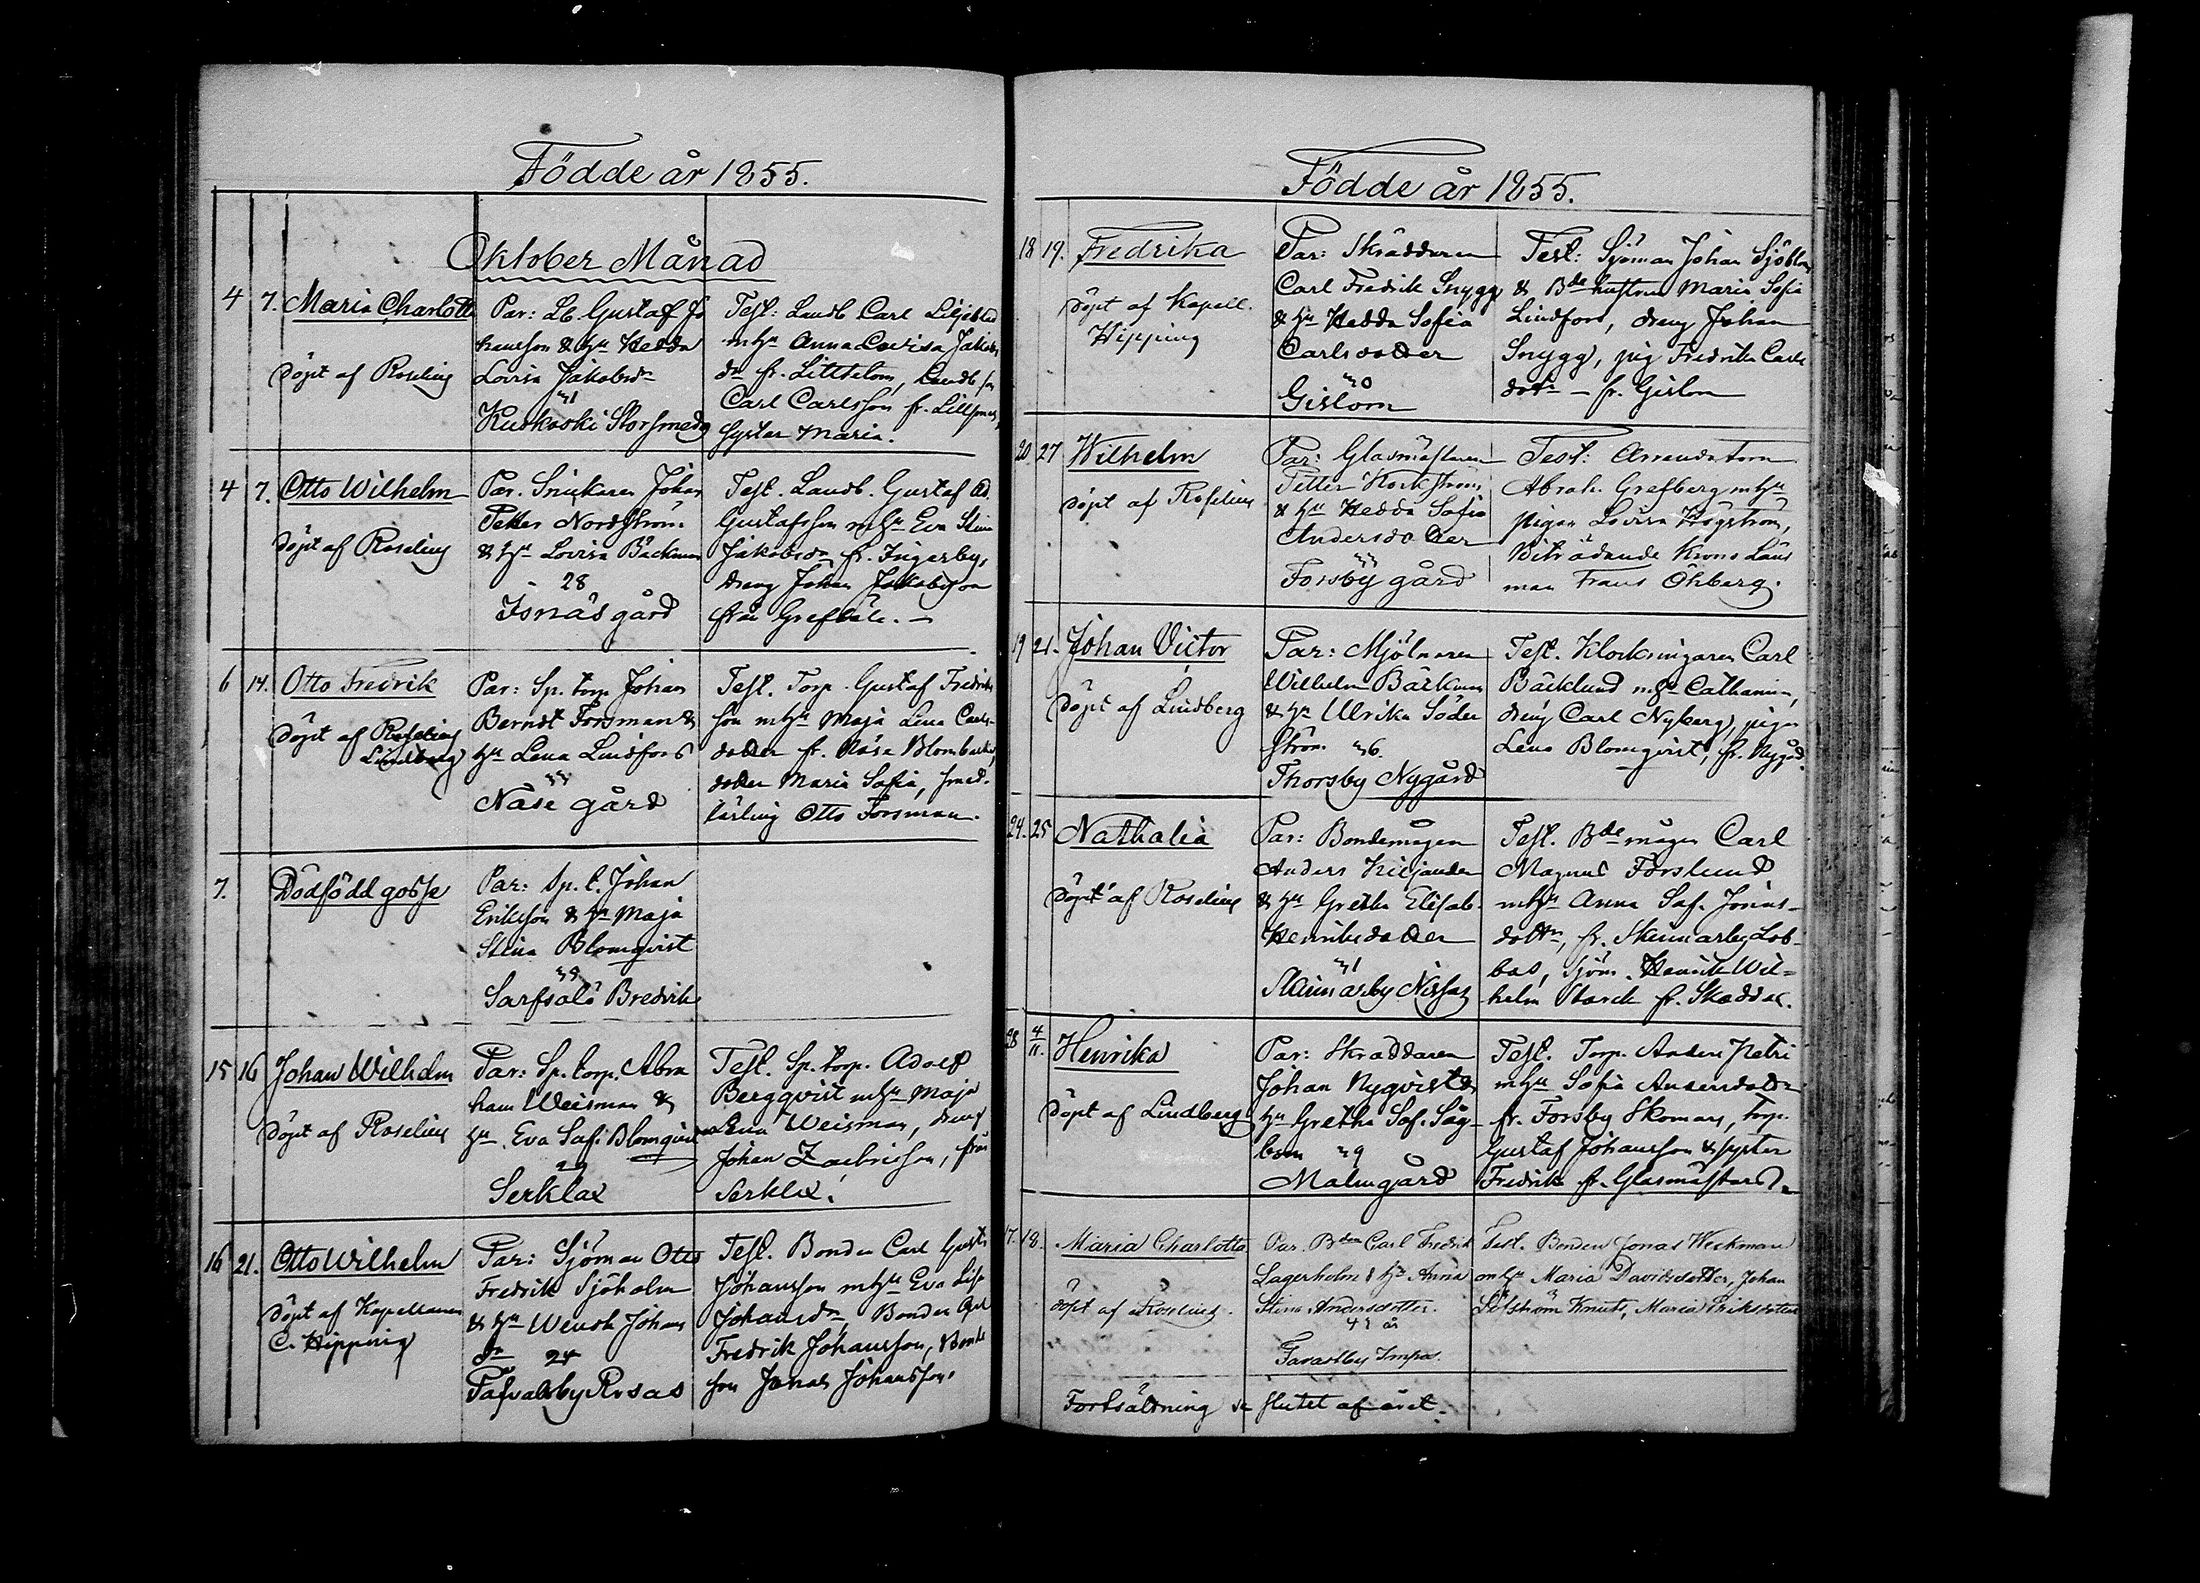 Födde år 1855.
Oktober Månad
4 7. Maria Charlotta
Döpt af Roselius
Par: Lb. Gustaf Jo
hansson & hu Hedda
Lovisa Jakobsdr
31
Kuskoski Storsmeds
Test: Landb Carl Liljeblad
mhu Anna Lovisa Jakobs
dr fr. Littelom, Landb. sn
Carl Carlsson fr. Lillsmeds,
Syster Maria.
4 7. Otto Wilhelm
Döpt af Roselius
Par. Snickaren Johan
Petter Nordström
& hu Lovisa Bäckman
28
Isnäs gård
Test. Landb. Gustaf Ad.
Gustafsson mhu Eva Stina
Jakobsdr fr. Ingerby,
dreng Johan Jakobsson
från Grefböle. –
6 14. Otto Fredrik
Döpt af Roselius
Lindberg
Par: Sp. torp Johan
Berndt Forsman &
hu Lena Lindfors
33
Näse gård
Test. Torp. Gustaf Fredriks
son mhu Maja Lena Carls-
dotter fr. Näse Blombacka,
dotter Maria Sofia, smed-
lärling Otto Forsman.
7. Dödfödd gosse
Par: Sp. t. Johan
Eriksson & hu Maja
Stina Blomqvist
38
Sarfsalö Bredviks
15 16 Johan Wilhelm
Döpt af Roselius
Par: Sp. torp. Abra
ham Weisman &
hu Eva Sofi Blomqvist
29
Serklax
Test. Sp. torp. Adolf
Bergqvist mhu Maja
Lena Weisman, dreng
Johan Zachrisson, från
Serklax.
16 21. Otto Wilhelm
Döpt af Kapellanen
C. Hipping
Par: Sjöman Otto
Fredrik Sjöholm
& hu Wendla Johans
dr 24
Tafvalsby Rosas
Test. Bonden Carl Gust.
Johansson mhu Eva Lis.
Johansdr, Bonden
Fredrik Johansson, Bonde
son Jonas Johansson.
Födde år 1855.
18 19. Fredrika
Döpt af Kapell.
Hipping
Par: Skräddaren
Carl Fredrik Snygg
& hu Hedda Sofia
Carlsdotter
30
Gislom
Test: Sjöman Johan Sjöblom
& Bde hustrun Maria Sofia
Lindfors, dreng Johan
Snygg, pig Fredrika Carls
dottr – fr. Gislom
20 27 Wilhelm
Döpt af Roselius
Par: Glasmästaren
Petter Korkström
& hu Hedda Sofia
Andersdotter
33
Forsby gård
Test: Arrendatorn
Abrah. Grefberg mhu
pigan Lovisa Högström,
Biträdande Krono Läns
man Frans Öhberg.
19 21. Johan Victor
Döpt af Lindberg
Par: Mjölnaren
Wilhelm Bäckman
& hu Ulrika Söder
ström 36.
Thorsby Nygård
Test. Klockringaren Carl
Bäcklund mhu Catharina,
dreng Carl Nyberg, pigan
Lena Blomqvist, fr. Nygård.
24. 25 Nathalia
Döpt af Roselius
Par: Bondemågen
Anders Kiljander
& hu Gretha Elisab.
Henriksdotter
31
Skinnarby Nissas
Test. Bde mågen Carl
Magnus Forslund
mhu Anna Sof. Jonas-
dottr, fr. Skinnarby Lob-
bas, Sjöm. Henrik Wil-
helm Starck fr. Skaddas.
28 4/11. Henrika
Döpt af Lindberg
Par: Skräddaren
Johan Nyqvist &
hu Gretha Sof. Säg-
bom 39
Malmgård
Test. Torp. Anders Petri
mhu Sofia Andersdotter
fr. Forsby Skomars, Torp.
Gustaf Johansson & syster
Fredrika fr. Glasmästars.
17. 18. Maria Charlotta
döpt af Roselius.
Par. Bden Carl Fredrik
Lagerholm & hu Anna
Stina Andersdotter.
41 år
Tavastby Impos.
Test. Bonden Jonas Weckman
mhu Maria Davidsdotter, Johan
Löfström Knuts, Maria Eriksdotter
Fortsättning se slutet af året.